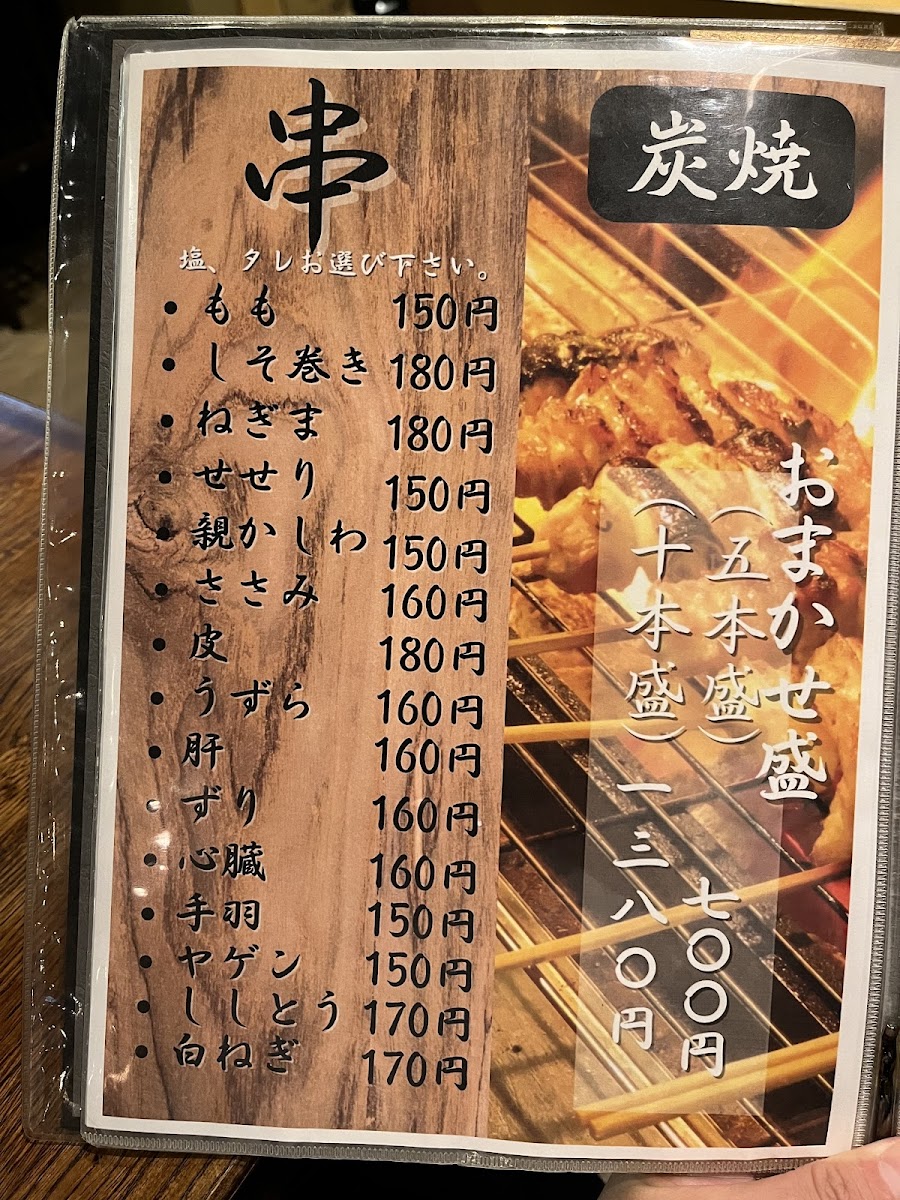 串
炭焼
塩、タレお選び下さい。
・もも 150円
・しそ巻き 180円
・ねぎま 180円
・せせり 150円
・親かしわ 150円
・ささみ 160円
・皮 180円
・うずら 160円
・肝 160円
・ずり 160円
・心臓 160円
・手羽 150円
・ヤゲン 150円
・ししとう 170円
・白ねぎ 170円
おまかせ盛
(五本盛) 七〇〇円
(十本盛) 一三八〇円